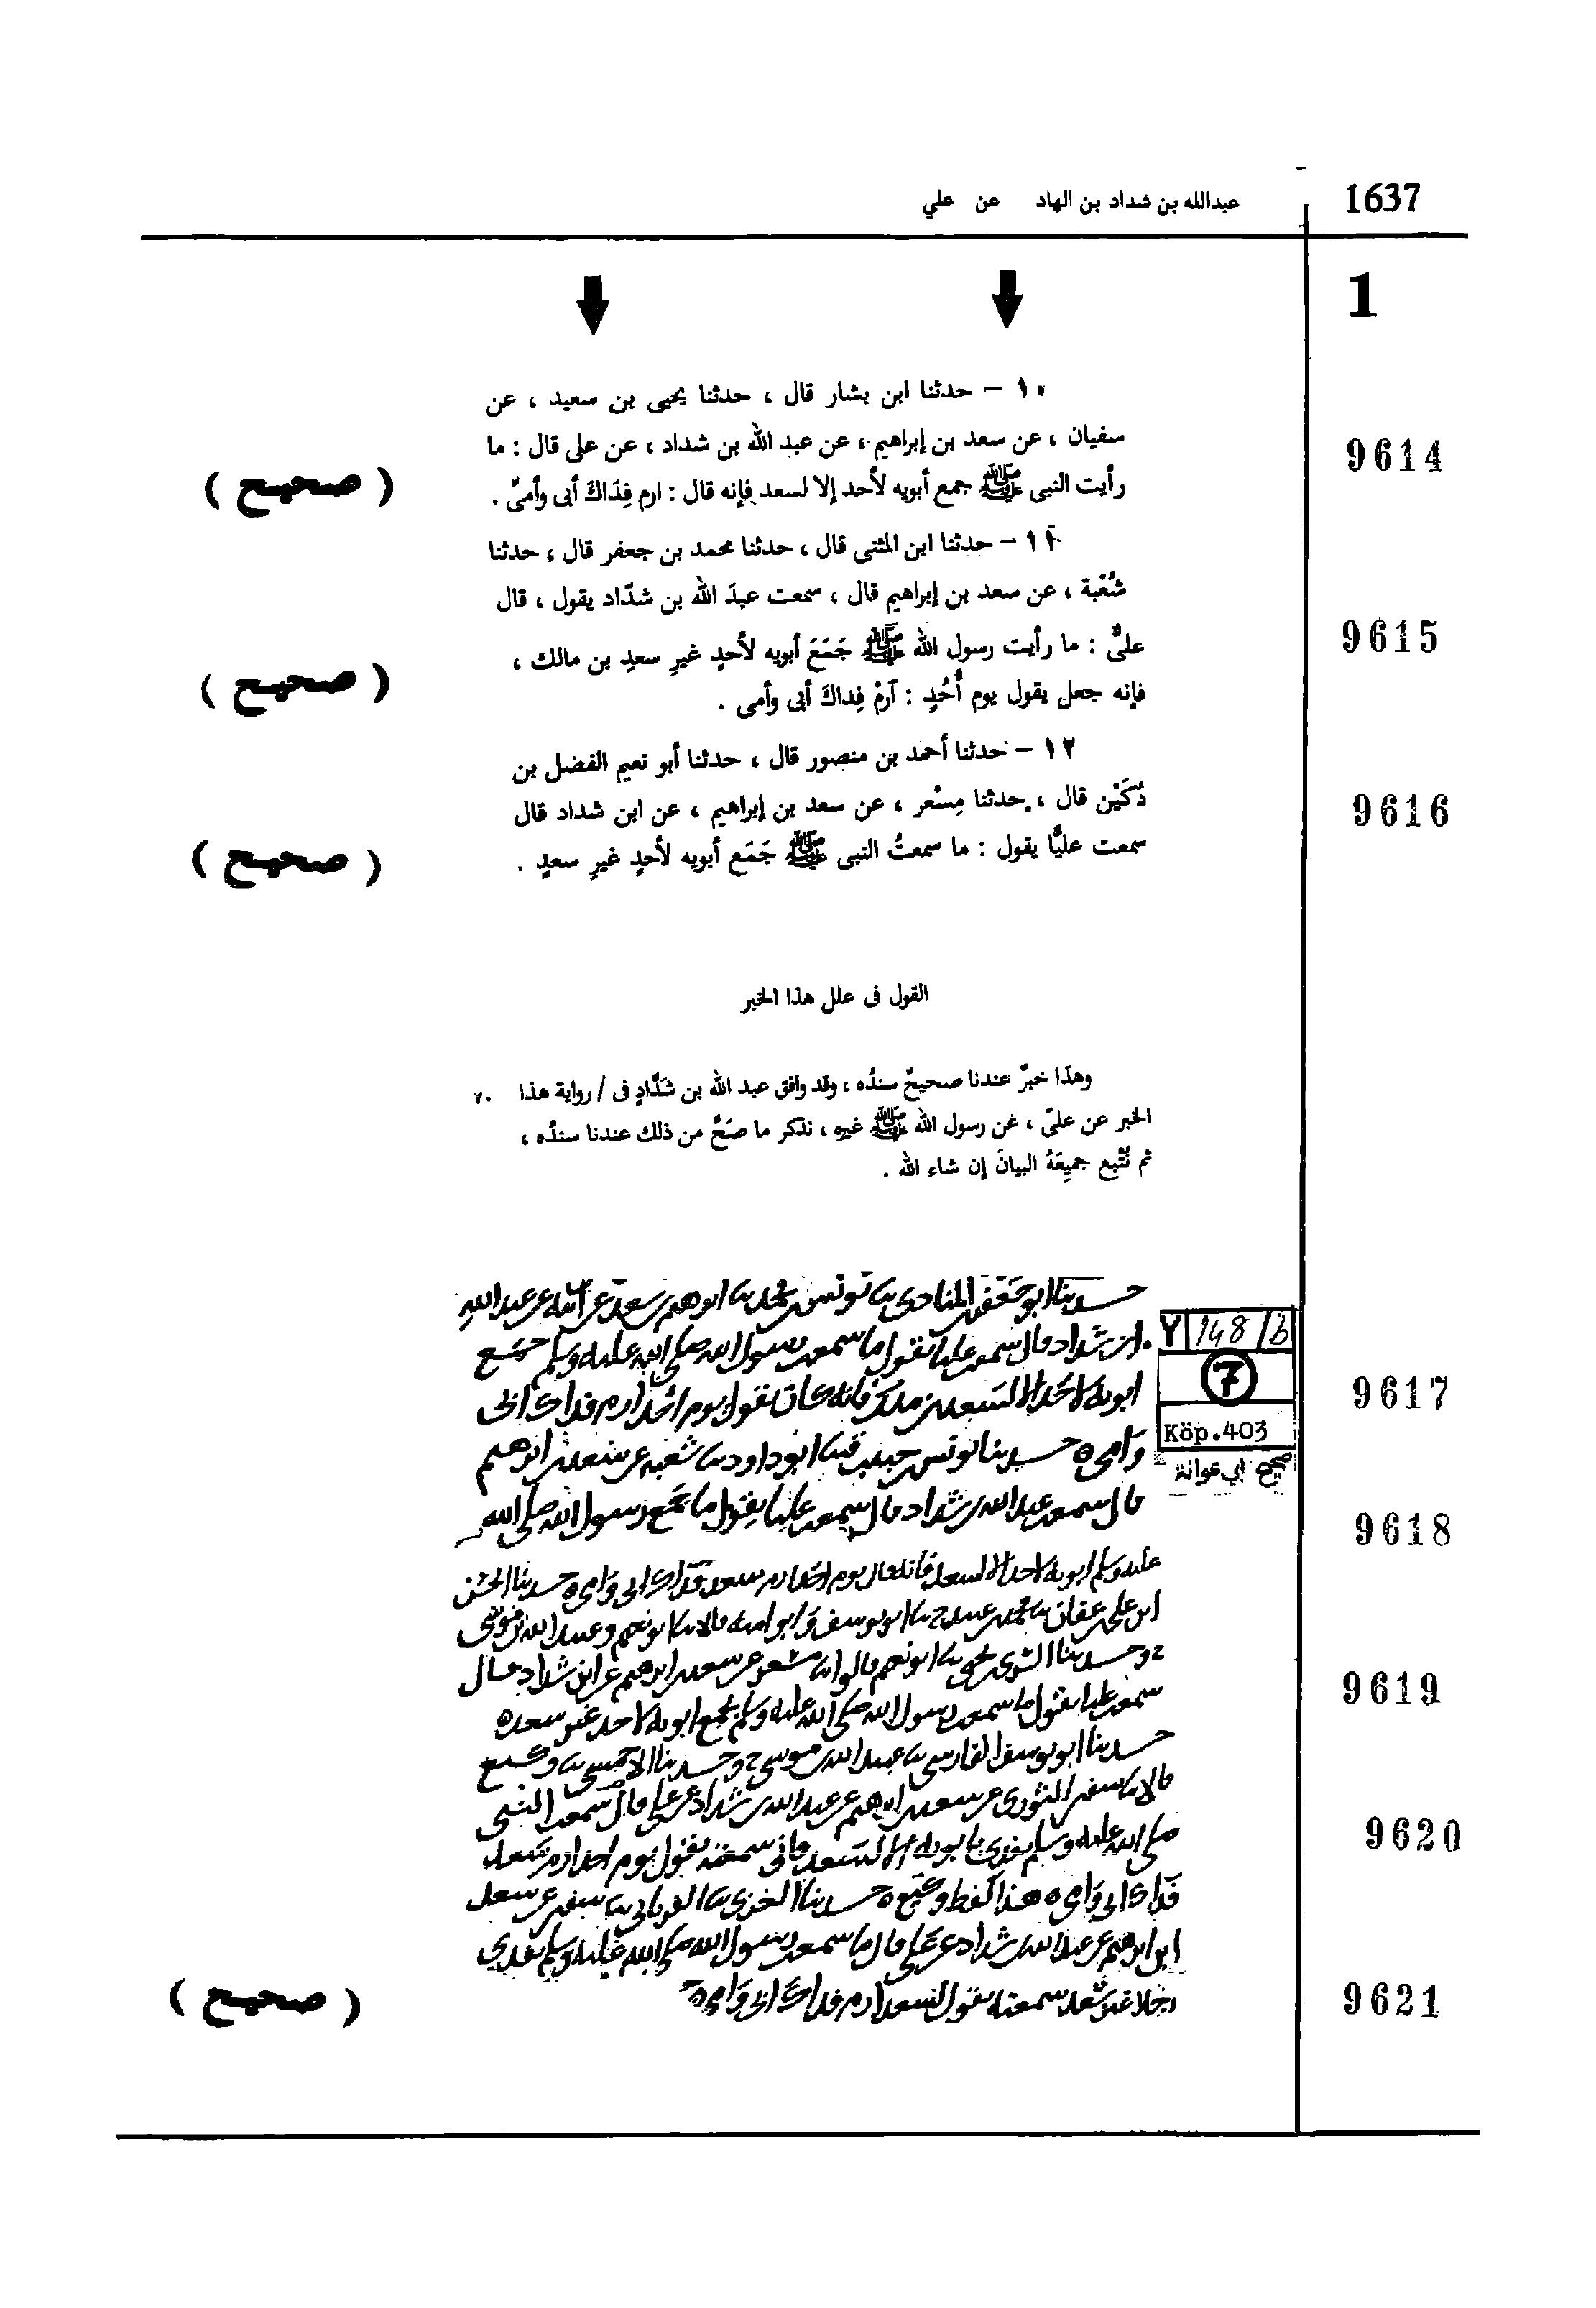 1637
عبدالله بن شداد بن الهاد عن علي
1
١٠ – حدثنا ابن بشار قال ، حدثنا يحيى بن سعيد ، عن
سفيان ، عن سعد بن إبراهيم ، عن عبد الله بن شداد ، عن على قال : ما
9614
رأيت النبى ﷺ جمع أبويه لأحد إلا لسعد فإنه قال : ارم فِدَاكَ أبى وأمىّ .
( صحيح )
١١ – حدثنا ابن المثنى قال ، حدثنا محمد بن جعفر قال ، حدثنا
شُعْبة ، عن سعد بن إبراهيم قال ، سمعت عبدَ الله بن شدّاد يقول ، قال
9615
علىٌّ : ما رأيت رسول الله ﷺ جَمَعَ أبويه لأحدٍ غيرِ سعدِ بن مالك ،
فإنه جعل يقول يوم أُحُدٍ : آرمْ فِداكَ أبى وأمى .
( صحيح )
١٢ – حدثنا أحمد بن منصور قال ، حدثنا أبو نعيم الفضل بن
دُكَيْن قال ، حدثنا مِسْعر ، عن سعد بن إبراهيم ، عن ابن شداد قال
9616
سمعت عليًّا يقول : ما سمعتُ النبى ﷺ جَمَع أبويه لأحدٍ غيرِ سعدٍ .
( صحيح )
القول فى علل هذا الخبر
وهذا خبرٌ عندنا صحيحٌ سندُه ، وقد وافق عبد الله بن شَدَّادٍ فى / رواية هذا ٧٠
الخبر عن علىّ ، عن رسول الله ﷺ غيره ، نذكر ما صَحَّ من ذلك عندنا سندُه ،
ثم نُتْبِع جميعَهُ البيانَ إن شاء الله .
حدثنا ابو جعفر المنادى يونس بن محمد ابرهيم بن سعد عن ابيه عن عبد الله
ابن شداد قال سمعت عليا يقول ما سمعت رسول الله صلى الله عليه وسلم جمع
Y 148/b
7
ابويه لاحد الا لسعد بن ملك فانه كان يقول يوم احد ارم فداك ابى
9617
Köp.403
وامى حدثنا يونس بن حبيب ابو داود شعبه عن سعد بن ابرهيم
صحيح ابي عوانة
قال سمعت عبد الله بن شداد قال سمعت عليا يقول ما جمع رسول الله صلى الله
9618
عليه وسلم ابويه لاحد الا لسعد فانه قال يوم احد ارم سعد فداك ابى وامى حدثنا الحسن
ابن على بن عفان محمد بن عبيد ح ابو يوسف وابو اميه قالا ابو نعيم وعبيد الله بن موسى
ح وحدثنا السرى بن يحيى ابو نعيم قالوا مسعر عن سعد بن ابرهيم عن ابن شداد قال
9619
سمعت عليا يقول ما سمعت رسول الله صلى الله عليه وسلم يجمع ابويه لاحد غير سعد
حدثنا ابو يوسف الفارسى عبيد الله بن موسى ح وحدثنا الاحمسى وكيع
قالا سفين الثورى عن سعد بن ابرهيم عن عبد الله بن شداد عن على قال سمعت النبى
9620
صلى الله عليه وسلم يفدى بابويه الا لسعد فانى سمعته يقول يوم احد ارم سعد
فداك ابى وامى هذا لفظ وكيع حدثنا الغزى الفريابى سفين عن سعد
ابن ابرهيم عن عبد الله بن شداد عن على قال ما سمعت رسول الله صلى الله عليه وسلم يفدى
رجلا غير سعد سمعته يقول لسعد ارم فداك ابى وامى
9621
( صحيح )